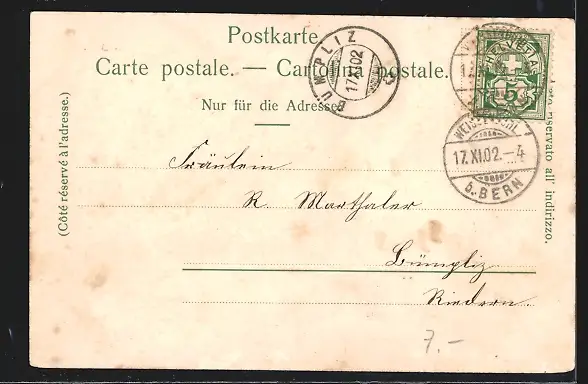 Postkarte.
Carte postale. — Cartolina postale.
Nur für die Adresse.
(Côté réservé à l'adresse.)
riservato all' indirizzo.
BÜMPLIZ
17.XI.02
HELVETIA
5
17.XI.02.–4
b. BERN
Fräulein
R. Marthaler
Bümpliz
Riedern.
7.-